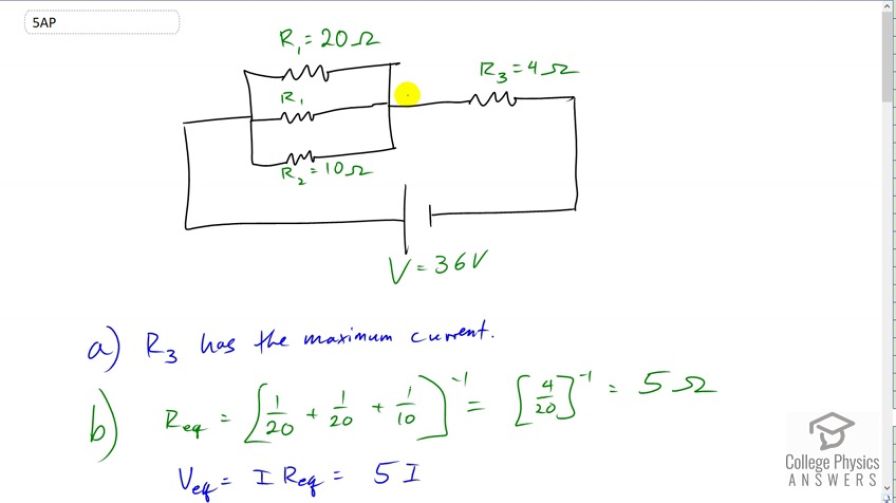 5AP
R₁ = 20 Ω
R₃ = 4 Ω
R₁
R₂ = 10 Ω
V = 36V
a) R₃ has the maximum current.
b) R_eq = [1/20 + 1/20 + 1/10]⁻¹ = [4/20]⁻¹ = 5 Ω
V_eq = I R_eq = 5 I
College Physics
ANSWERS